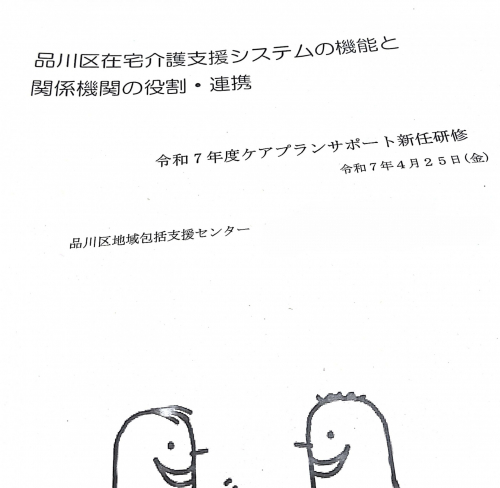 品川区在宅介護支援システムの機能と
関係機関の役割・連携
令和7年度ケアプランサポート新任研修
令和7年4月25日(金)
品川区地域包括支援センター